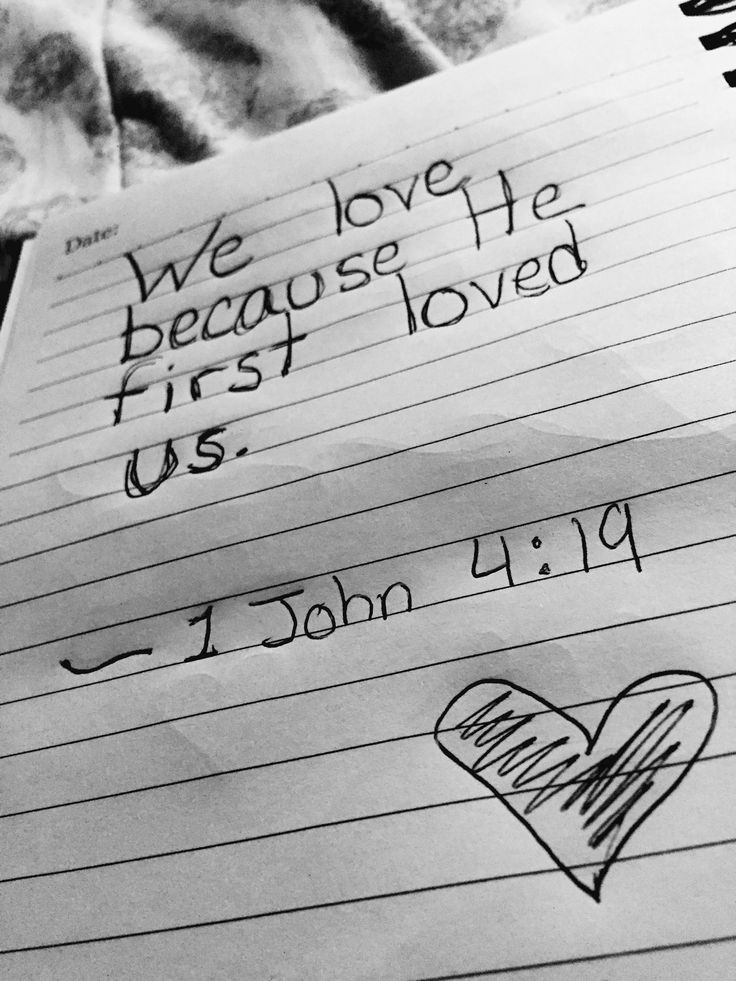 Date:
We love
because He
first loved
us.
— 1 John 4:19